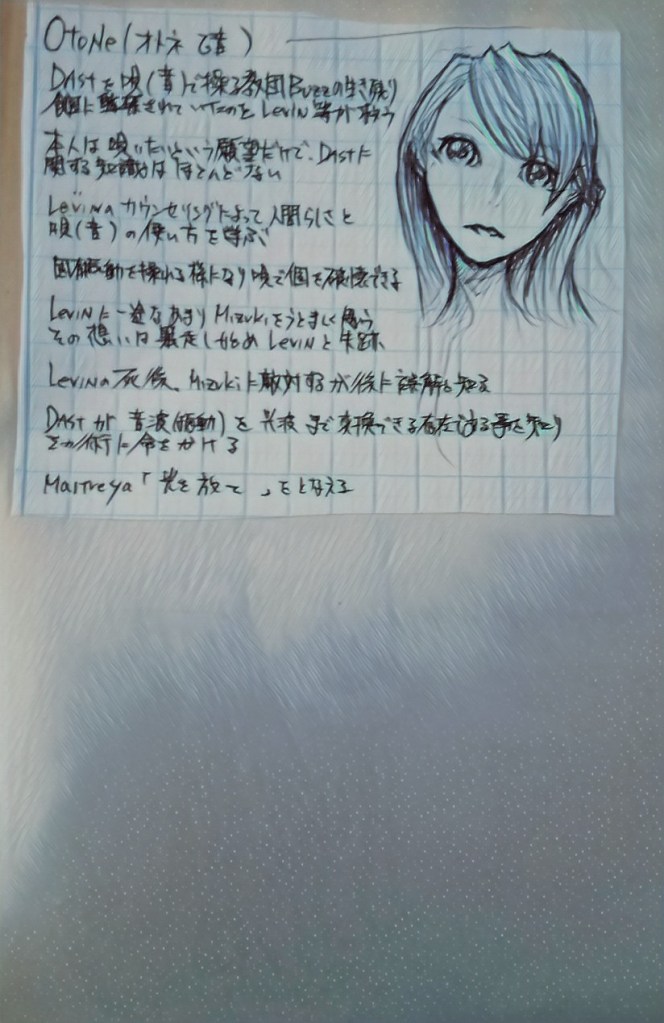 OtoNe(オトネ 乙音)
DAStを唄(音)で操る教団Buzzの生き残り
個に監禁されていたのをLeviN等が救う
本人は唄いたいという願望だけで、DAStに
関する知識はほとんどない
LeviNのカウンセリングによって人間らしさと
唄(音)の使い方を学ぶ
固有振動を操れる様になり唄で個を破壊できる
LeviNに一途なあまりMizukiをうとましく思う
その想いは暴走しはじめLeviNと失踪
LeviNの死後、Mizukiに敵対するが後に誤解を知る
DAStが音波(振動)を光波まで変換できる存在である事を知り
その術に命をかける
Maitreya「光を放て」をとなえる